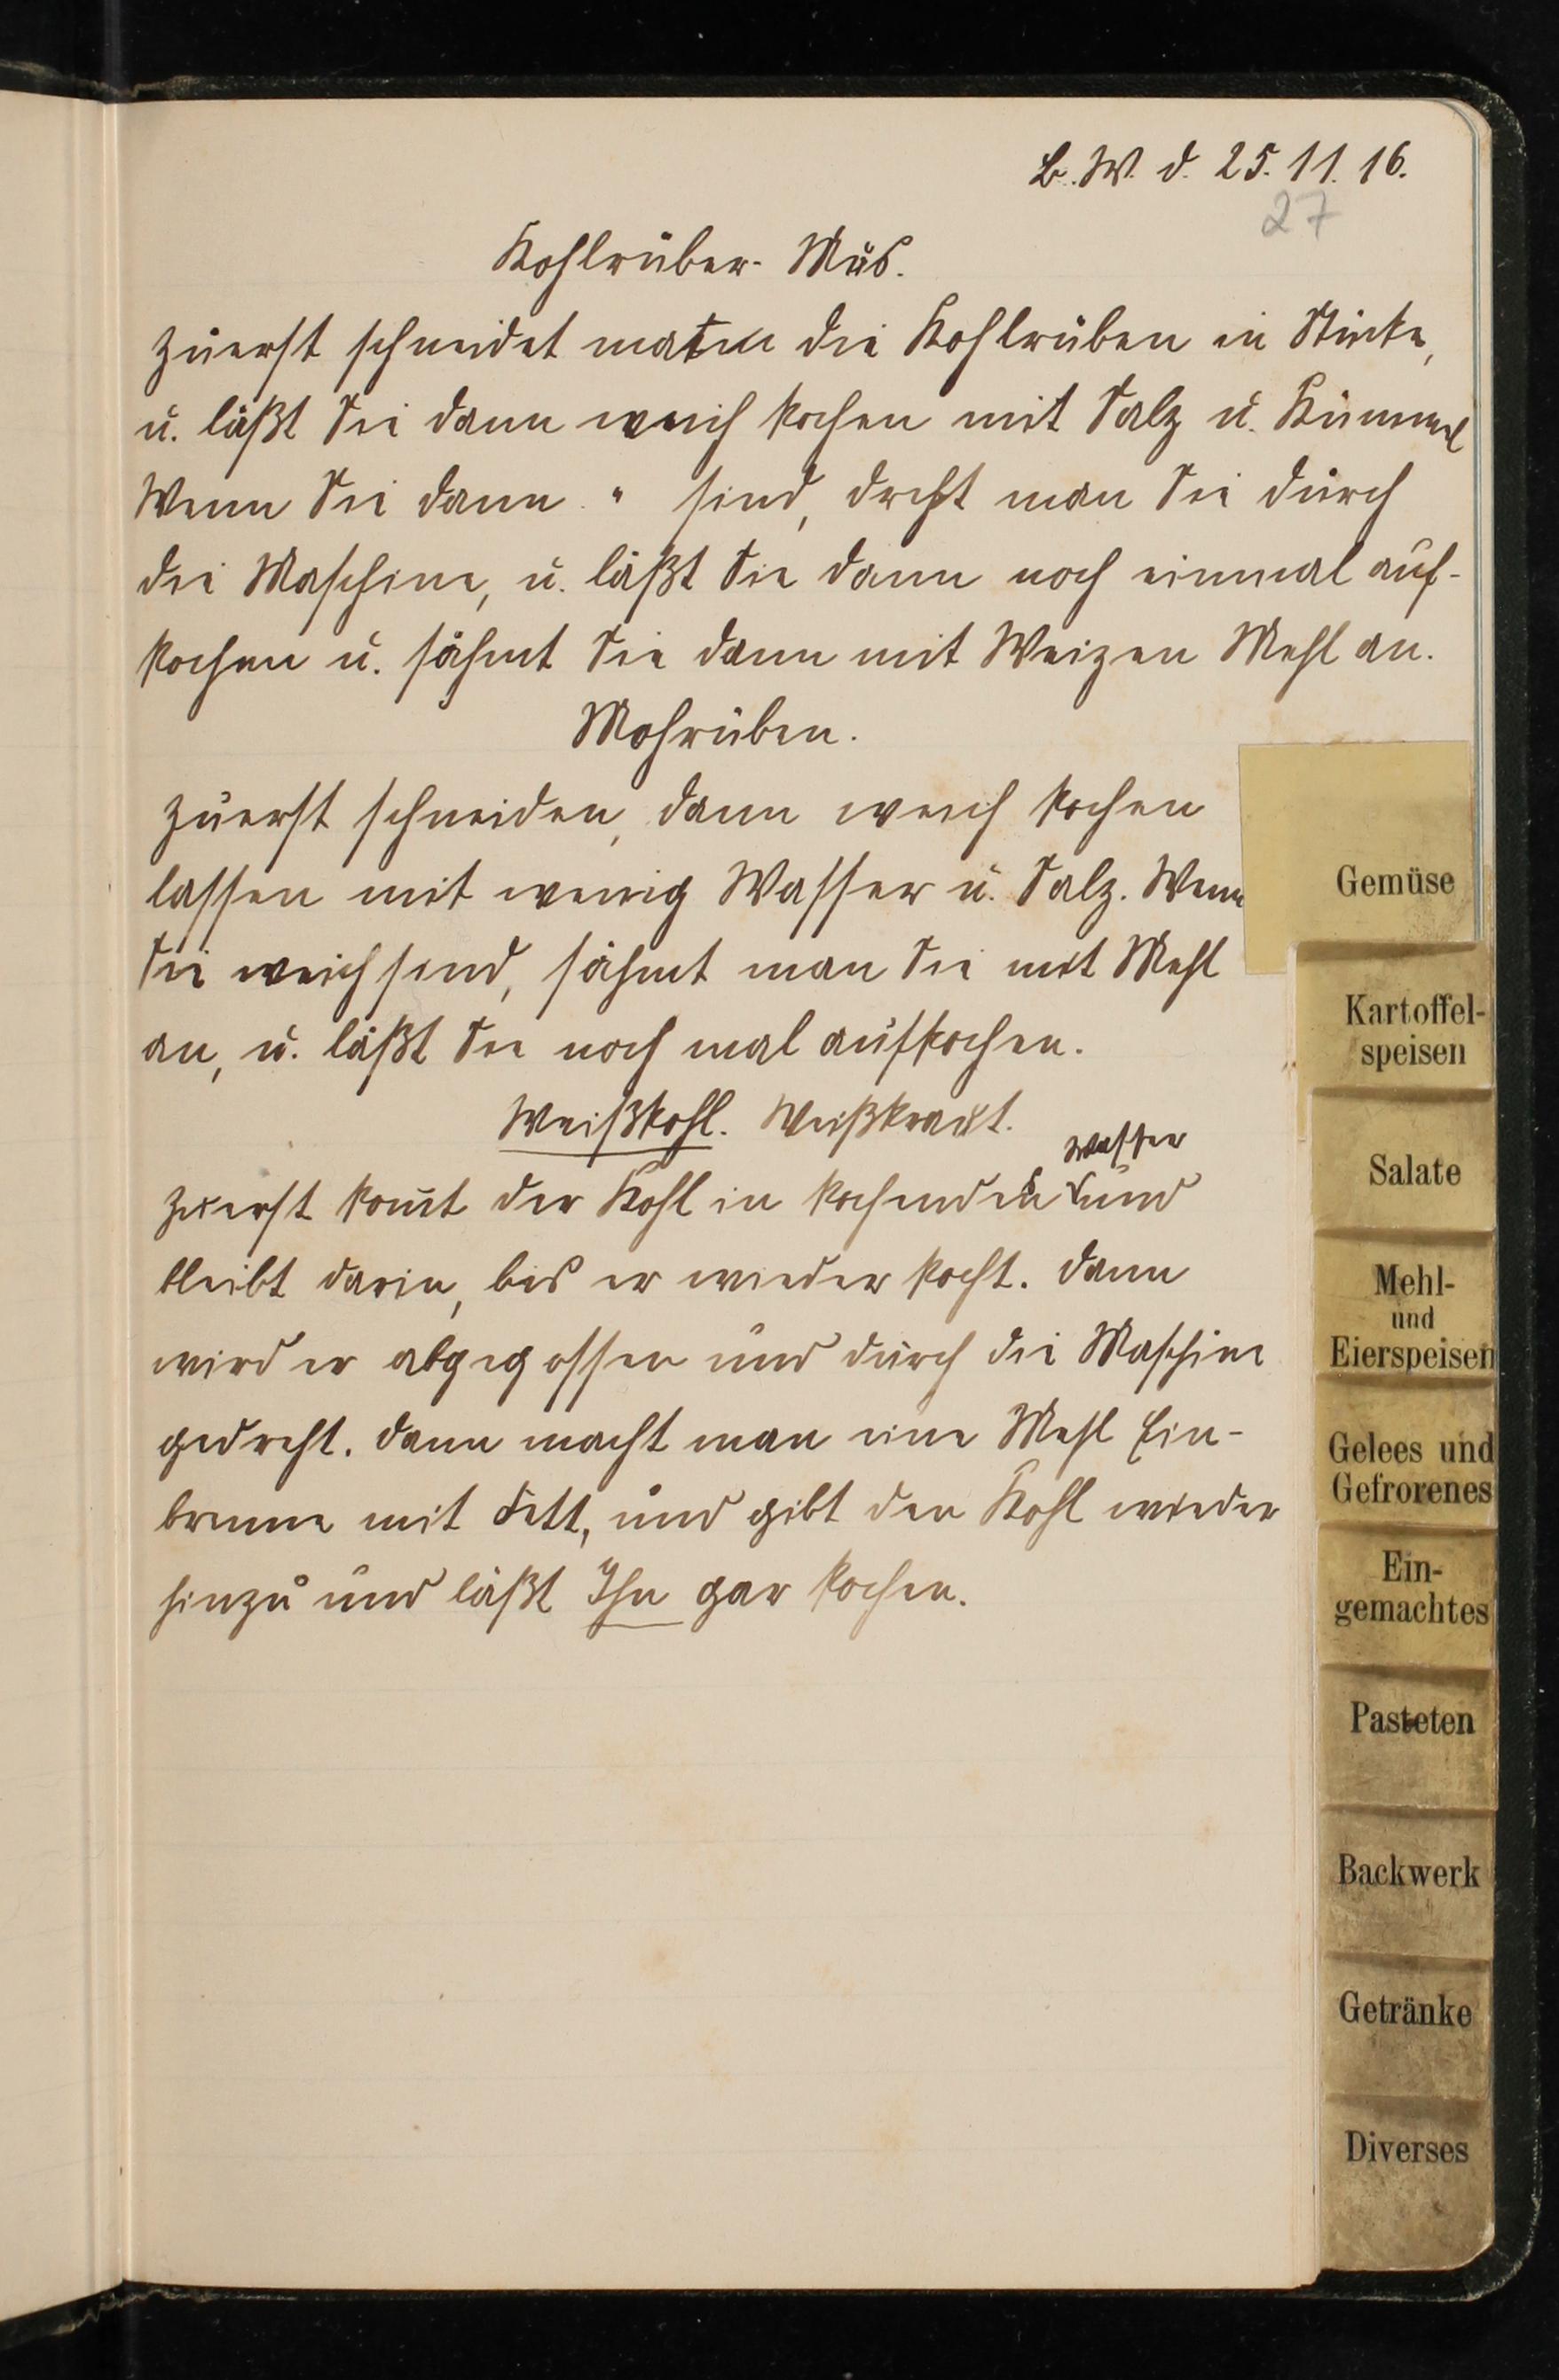 B. W. d. 25. 11. 16.
27
Kohlrüber- Mus.
Zuerst schneidet man die Kohlrüben in Stücke,
u. läßt Sie dann weich kochen mit Salz u. Kümmel
Wenn Sie dann " sind, dreht man Sie durch
die Maschine, u. läßt Sie dann noch einmal auf-
kochen u. sähmt Sie dann mit Weizen Mehl an.
Mohrüben.
Zuerst schneiden, dann weich kochen
lassen mit wenig Wasser u. Salz. Wenn
Sie weich sind, sähmt man Sie mit Mehl
an, u. läßt Sie noch mal aufkochen.
Weißkohl. Weißkraut.
Wasser
Zuerst komt der Kohl in kochendes und
bleibt darin, bis er wieder kocht. Dann
wird er abgegossen und durch die Maschine
gedreht. Dann macht man eine Mehl Ein-
brenne mit Fett, und gibt den Kohl wieder
hinzu und läßt Ihn gar kochen.
Gemüse
Kartoffel-
speisen
Salate
Mehl-
und
Eierspeisen
Gelees und
Gefrorenes
Ein-
gemachtes
Pasteten
Backwerk
Getränke
Diverses